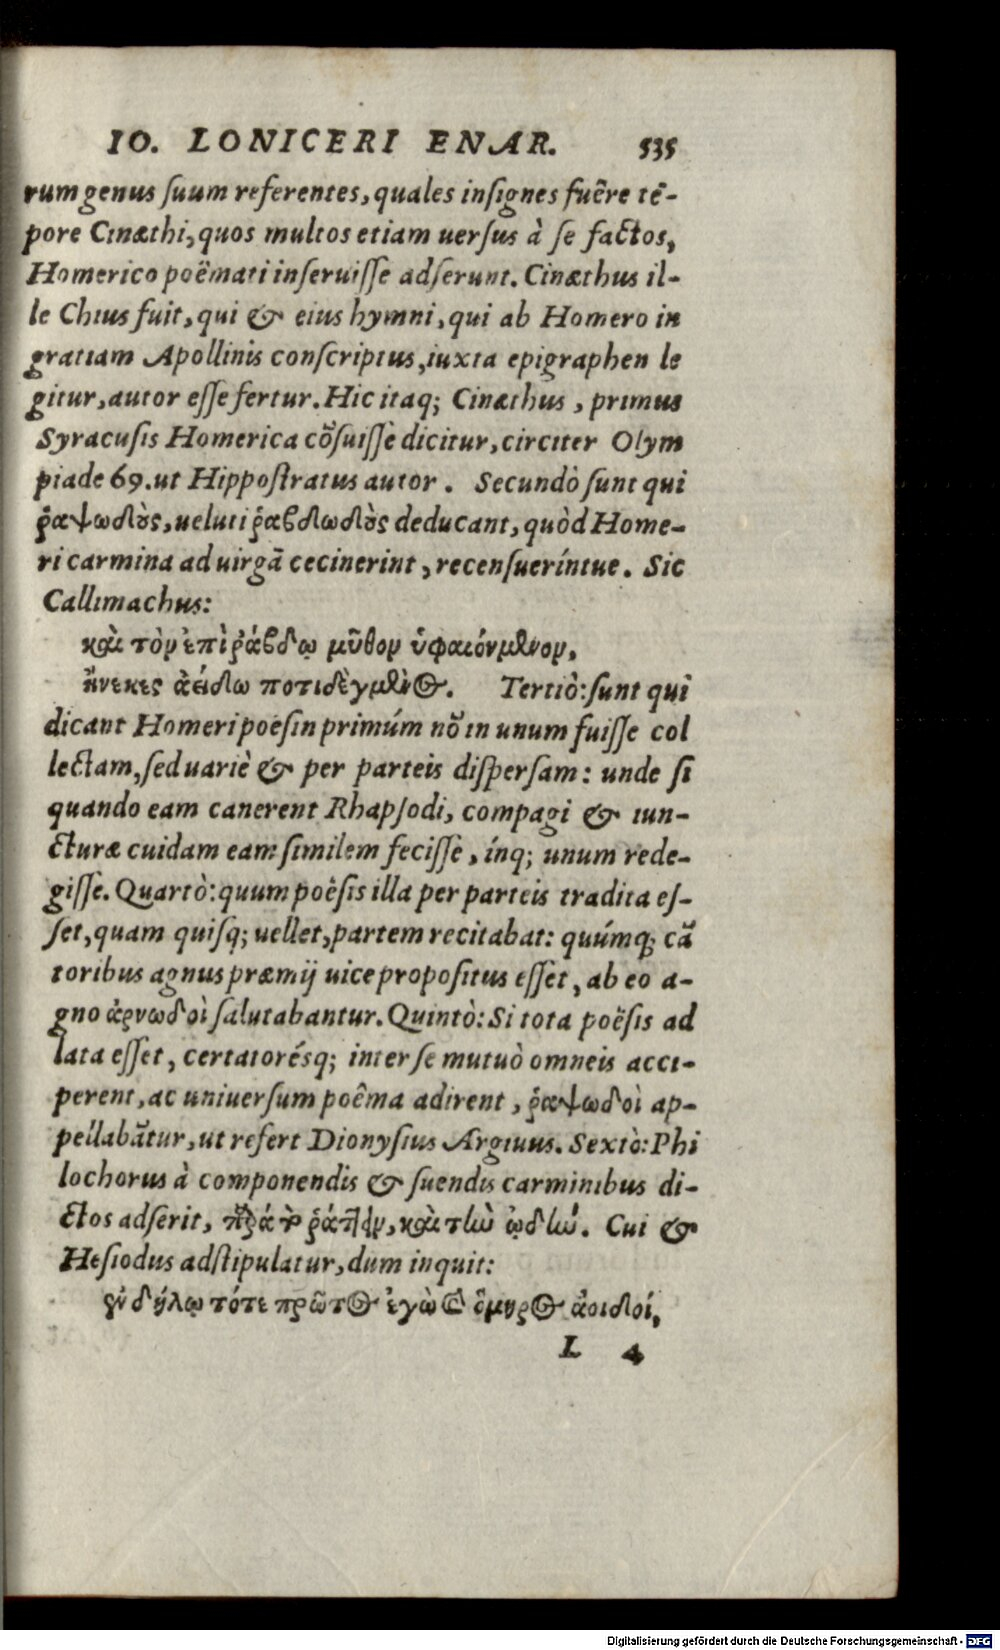 IO. LONICERI ENAR. 535
rum genus suum referentes, quales insignes fuêre tē-
pore Cinæthi, quos multos etiam uersus à se factos,
Homerico poëmati inseruisse adserunt. Cinæthus il-
le Chius fuit, qui & eius hymni, qui ab Homero in
gratiam Apollinis conscriptus, iuxta epigraphen le
gitur, autor esse fertur. Hic itaq; Cinæthus, primus
Syracusis Homerica cōsuisse dicitur, circiter Olym
piade 69. ut Hippostratus autor. Secundò sunt qui
ῥαψωδὸς, ueluti ῥαβδωδὸς deducant, quòd Home-
ri carmina ad uirgā cecinerint, recensueríntue. Sic
Callimachus:
καὶ τὸν ἐπὶ ῥάβδῳ μῦθον ὑφαιόνμενον,
ἠνεκες ἀείδω ποτιδὲγμενος. Tertiò: sunt qui
dicant Homeri poësin primúm nō in unum fuisse col
lectam, sed uariè & per parteis dispersam: unde si
quando eam canerent Rhapsodi, compagi & iun-
cturæ cuidam eam similem fecisse, ínq; unum rede-
gisse. Quartò: quum poësis illa per parteis tradita es-
set, quam quisq; uellet, partem recitabat: quúmq; cā
toribus agnus præmij uice propositus esset, ab eo a-
gno ἀρνωδοὶ salutabantur. Quintò: Si tota poësis ad
lata esset, certatorésq; inter se mutuò omneis acci-
perent, ac uniuersum poêma adirent, ῥαψωδοὶ ap-
pellabātur, ut refert Dionysius Argiuus. Sextò: Phi
lochorus à componendis & suendis carminibus di-
ctos adserit, παρὰ τὸ ῥάπτειν, καὶ τὴν ᾠδὴν. Cui &
Hesiodus adstipulatur, dum inquit:
ἐν δήλῳ τότε πρῶτος ἐγὼ καὶ ὅμηρος ἀοιδοί,
L 4
Digitalisierung gefördert durch die Deutsche Forschungsgemeinschaft - DFG